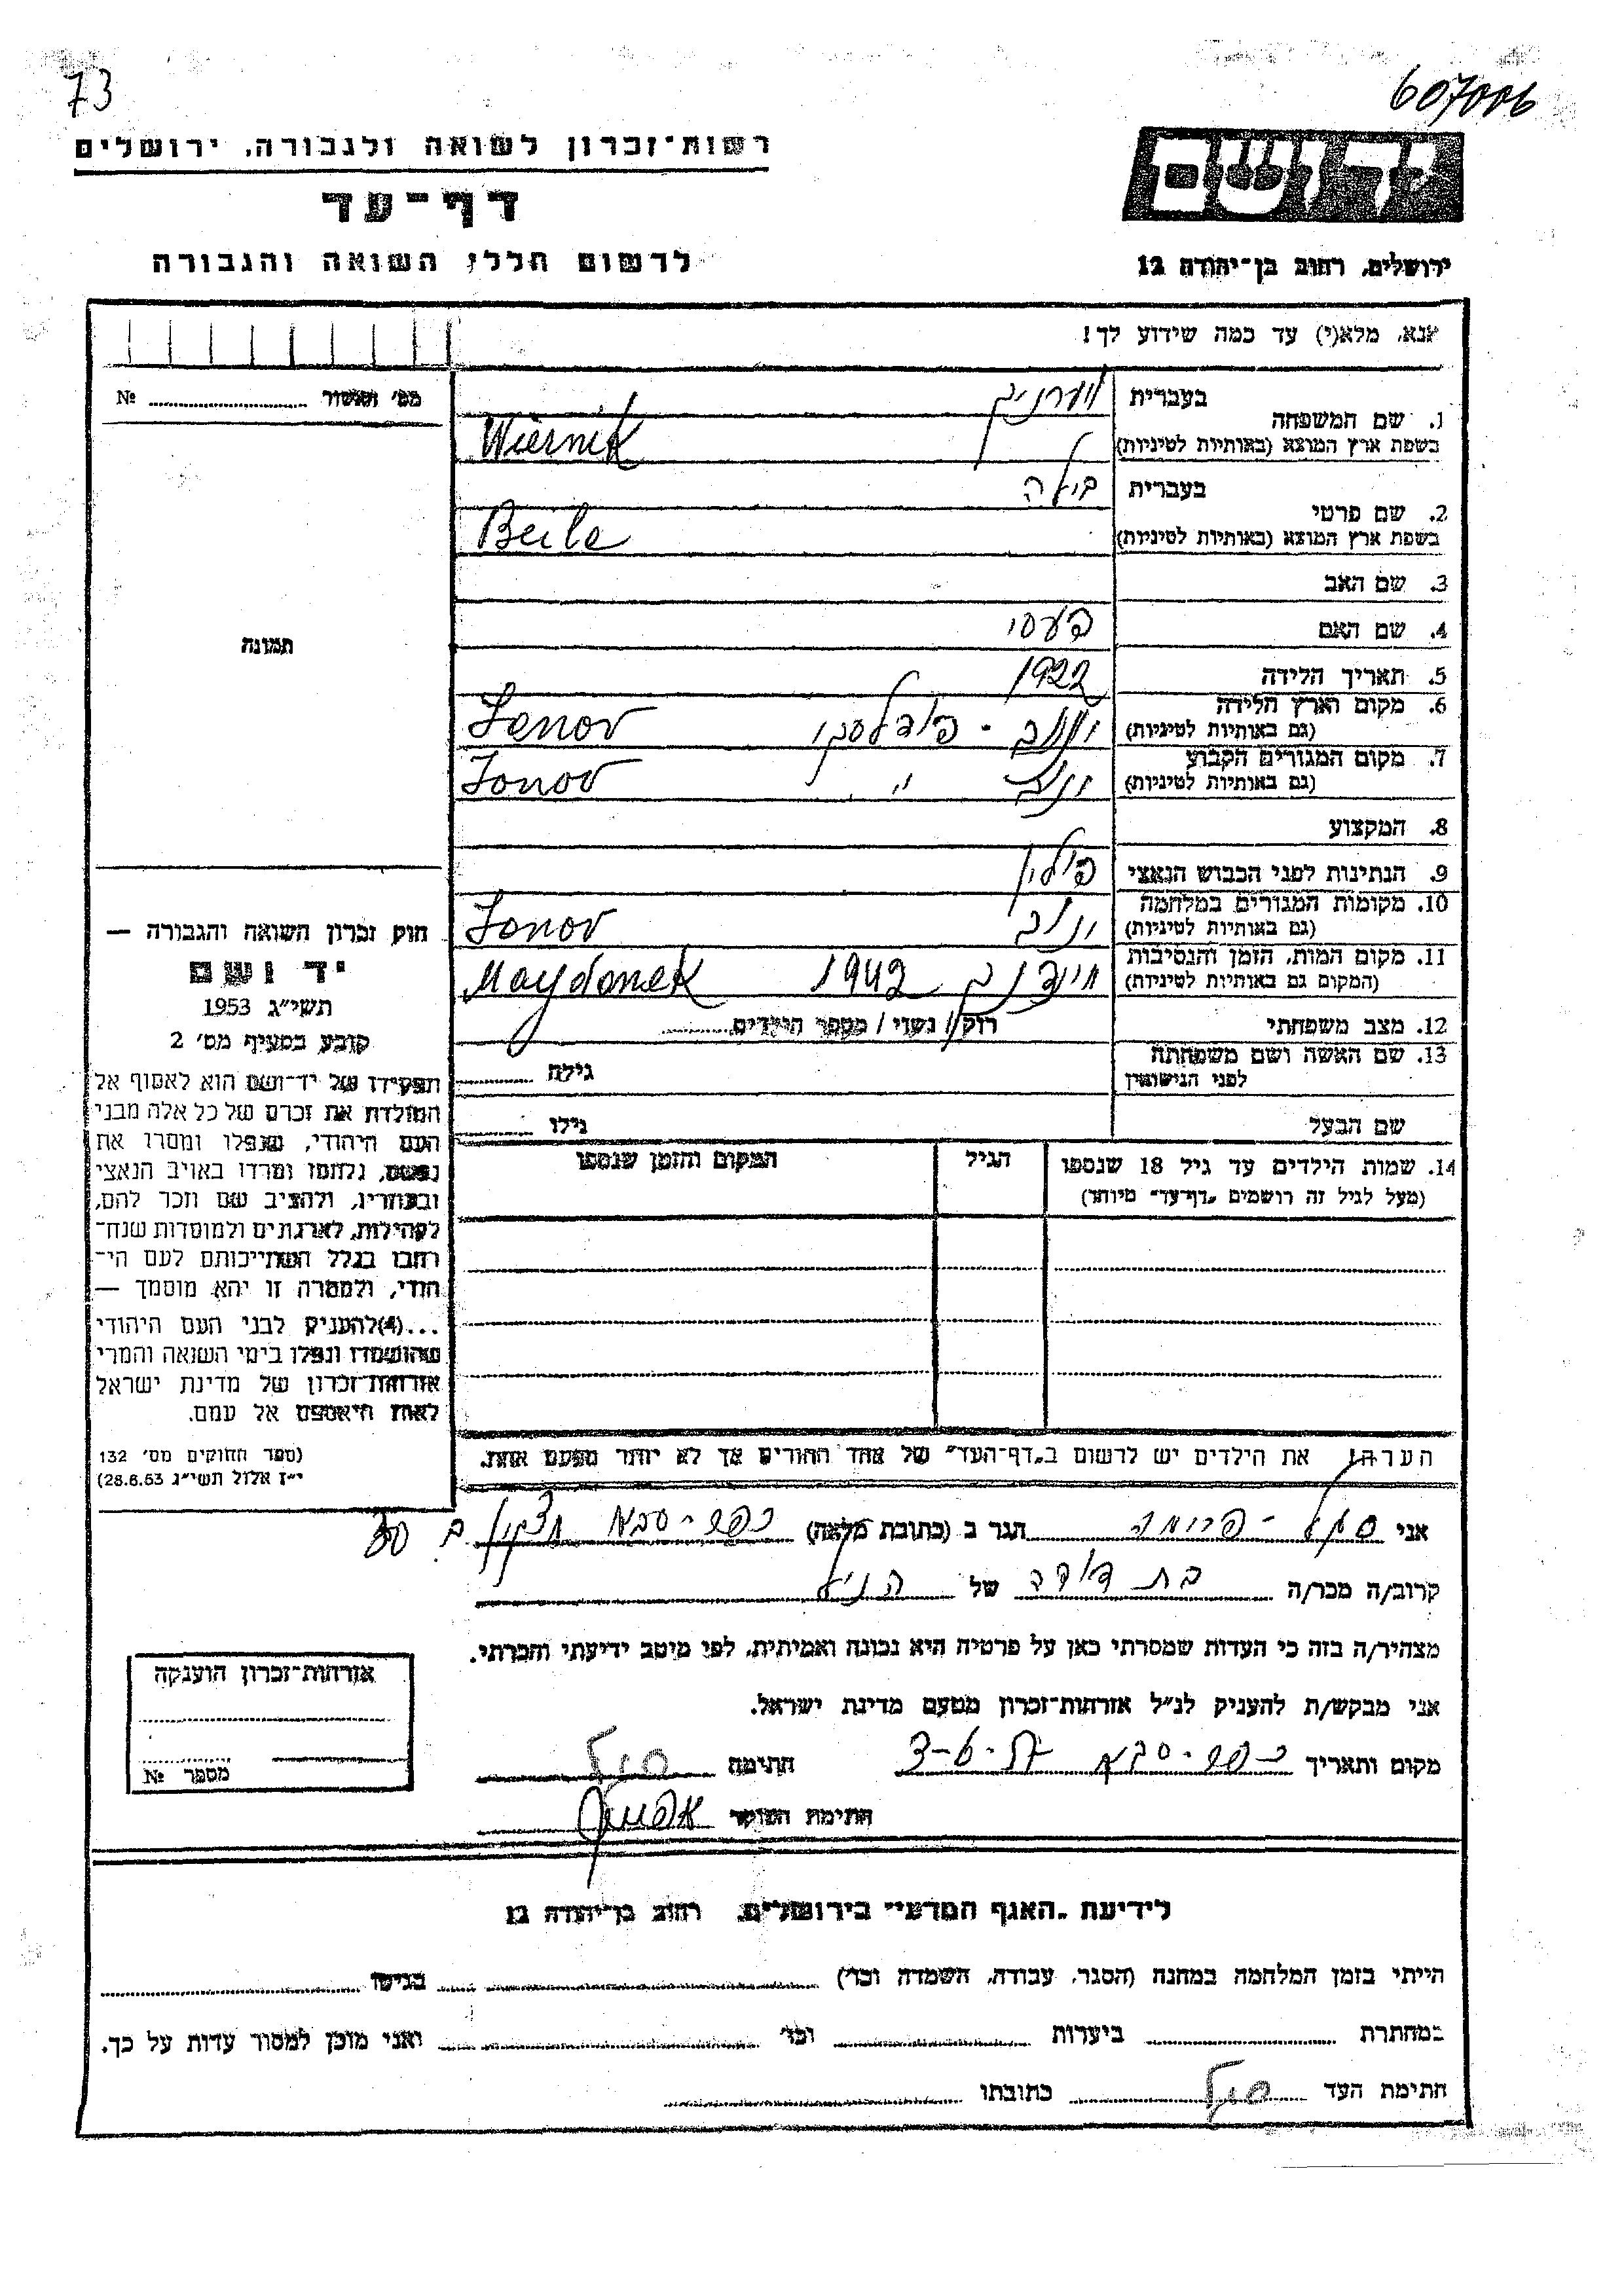 73
607006
רשות־זכרון לשואה ולגבורה, ירושלים
דף־עד
לרשום חללי השואה והגבורה
יד ושם
ירושלים, רחוב בן־יהודה 12
אנא, מלא(י) עד כמה שידוע לך!
מס' האשור № ........
1. שם המשפחה
בעברית ווערניק
בשפת ארץ המוצא (באותיות לטיניות) Wiernik
2. שם פרטי
בעברית ביילה
בשפת ארץ המוצא (באותיות לטיניות) Beile
3. שם האב
4. שם האם פעסי
תמונה
5. תאריך הלידה 1922
6. מקום וארץ הלידה
(גם באותיות לטיניות) ינוב - פודלסקי Janov
7. מקום המגורים הקבוע
(גם באותיות לטיניות) ינוב " Janov
8. המקצוע
9. הנתינות לפני הכבוש הנאצי פולין
10. מקומות המגורים במלחמה
(גם באותיות לטיניות) ינוב Janov
11. מקום המות, הזמן והנסיבות
(המקום גם באותיות לטיניות) מיידנק 1942 Maydanek
12. מצב משפחתי רווק / נשוי / מספר הילדים
13. שם האשה ושם משפחתה
לפני הנישואין גילה
שם הבעל גילו
14. שמות הילדים עד גיל 18 שנספו
(מעל לגיל זה רושמים „דף־עד" מיוחד)
הגיל
המקום והזמן שנספו
חוק זכרון השואה והגבורה —
יד ושם
תשי"ג 1953
קובע בסעיף מס' 2
תפקידו של יד־ושם הוא לאסוף אל
המולדת את זכרם של כל אלה מבני
העם היהודי, שנפלו ומסרו את
נפשם, נלחמו ומרדו באויב הנאצי
ובעוזריו, ולהציב שם וזכר להם,
לקהילות, לארגונים ולמוסדות שנח־
רבו בגלל השתייכותם לעם הי־
הודי, ולמטרה זו יהא מוסמך —
...(4) להעניק לבני העם היהודי
שהושמדו ונפלו בימי השואה והמרי
אזרחות־זכרון של מדינת ישראל
לאות היאספם אל עמם.
(ספר החוקים מס' 132
י"ז אלול תשי"ג 28.8.53)
הערה: את הילדים יש לרשום ב„דף־העד" של אחד ההורים אך לא יותר מפעם אחת.
אני פרומה הגר ב (כתובת מלאה) כפר-סבא
קרוב/ה מכר/ה בת דודה של הנ"ל
מצהיר/ה בזה כי העדות שמסרתי כאן על פרטיה היא נכונה ואמיתית, לפי מיטב ידיעתי והכרתי.
אני מבקש/ת להעניק לנ"ל אזרחות־זכרון מטעם מדינת ישראל.
מקום ותאריך כפר-סבא חתימה
חתימת הפוקד
אזרחות־זכרון הוענקה
מספר №
לידיעת „האגף המדעי" בירושלים, רחוב בן־יהודה 12
הייתי בזמן המלחמה במחנה (הסגר, עבודה, השמדה וכו') בגיטו
במחתרת ביערות וכו' ואני מוכן למסור עדות על כך.
חתימת העד כתובתו